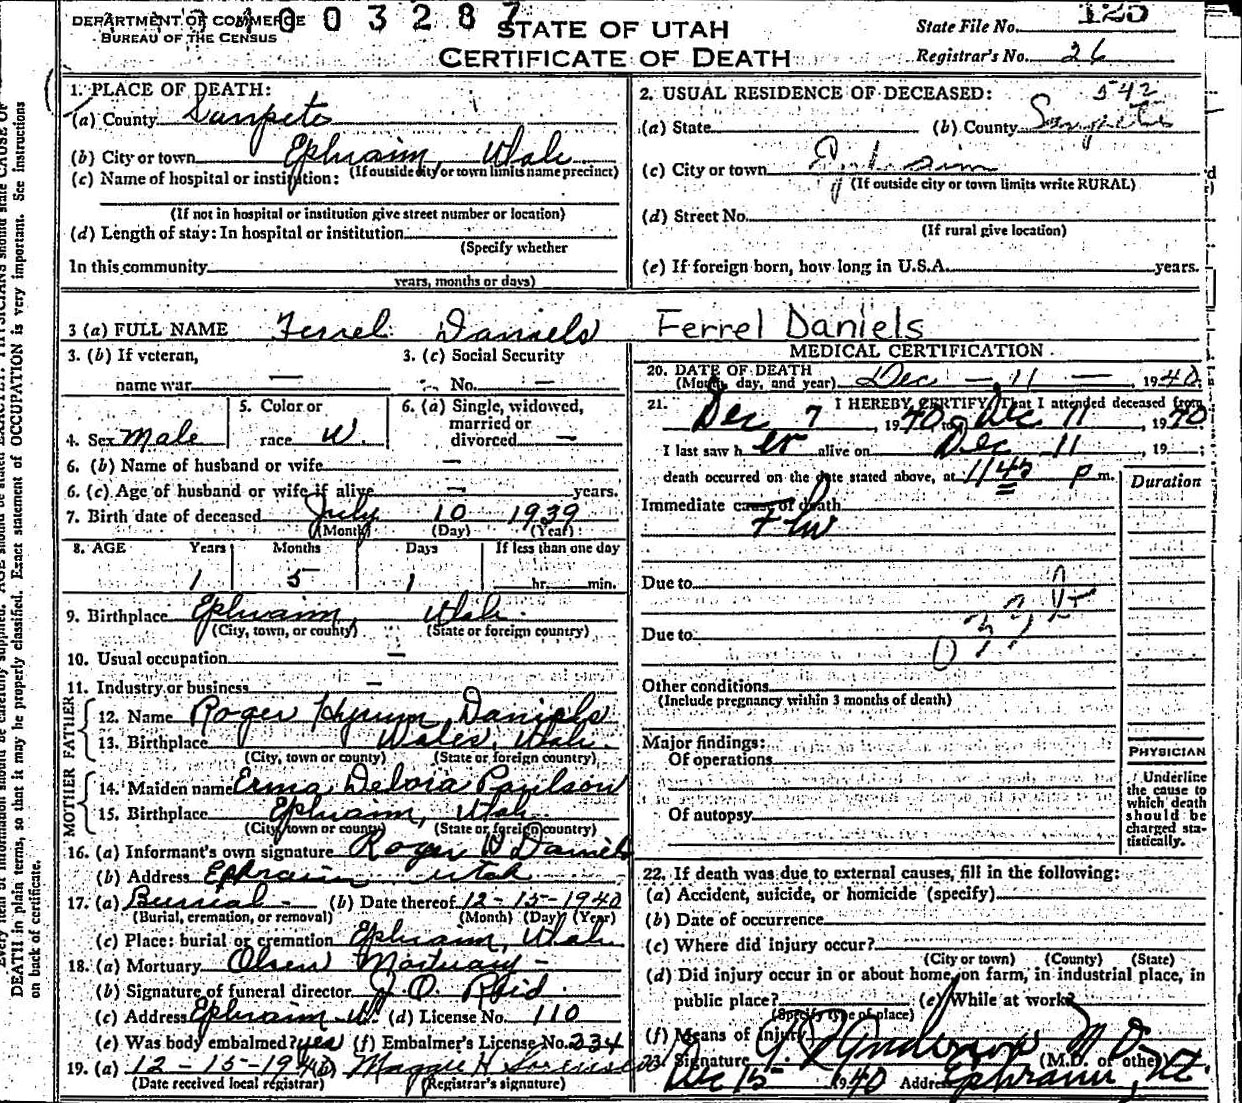 DEPARTMENT OF COMMERCE
BUREAU OF THE CENSUS
0 3 2 8 7
STATE OF UTAH
CERTIFICATE OF DEATH
State File No. 125
Registrar's No. 26
1. PLACE OF DEATH:
(a) County Sanpete
(b) City or town Ephraim, Utah
(If outside city or town limits name precinct)
(c) Name of hospital or institution:
(If not in hospital or institution give street number or location)
(d) Length of stay: In hospital or institution
(Specify whether
In this community
years, months or days)
2. USUAL RESIDENCE OF DECEASED: 542
(a) State (b) County Sanpete
(c) City or town Ephraim
(If outside city or town limits write RURAL)
(d) Street No.
(If rural give location)
(e) If foreign born, how long in U.S.A. years.
3 (a) FULL NAME Ferrel Daniels Ferrel Daniels
3. (b) If veteran, name war —
3. (c) Social Security No. —
4. Sex Male
5. Color or race W.
6. (a) Single, widowed, married or divorced —
6. (b) Name of husband or wife —
6. (c) Age of husband or wife if alive — years.
7. Birth date of deceased July 10 1939
(Month) (Day) (Year)
8. AGE Years Months Days If less than one day
1 5 1 hr. min.
9. Birthplace Ephraim, Utah.
(City, town, or county) (State or foreign country)
10. Usual occupation —
11. Industry or business —
FATHER
12. Name Roger Hyrum Daniels
13. Birthplace Wales, Utah.
(City, town or county) (State or foreign country)
MOTHER
14. Maiden name Erma Delora Paulson
15. Birthplace Ephraim, Utah.
(City, town or county) (State or foreign country)
16. (a) Informant's own signature Roger H Daniels
(b) Address Ephraim Utah
17. (a) Burial - (b) Date thereof 12-15-1940
(Burial, cremation, or removal) (Month) (Day) (Year)
(c) Place: burial or cremation Ephraim, Utah
18. (a) Mortuary Olsen Mortuary -
(b) Signature of funeral director J. O. Reid.
(c) Address Ephraim U. (d) License No. 110
(e) Was body embalmed? yes (f) Embalmer's License No. 234
19. (a) 12-15-1940 Maggie H Sorensen
(Date received local registrar) (Registrar's signature)
MEDICAL CERTIFICATION
20. DATE OF DEATH
(Month, day, and year) Dec - 11 - , 1940
21. I HEREBY CERTIFY, That I attended deceased from
Dec 7, 1940 to Dec 11, 1940
I last saw h alive on Dec 11, 19 ;
death occurred on the date stated above, at 1145 P m.
Duration
Immediate cause of death
Flu
Due to
Due to
Other conditions
(Include pregnancy within 3 months of death)
Major findings:
Of operations
Of autopsy
PHYSICIAN
Underline the cause to which death should be charged statistically.
22. If death was due to external causes, fill in the following:
(a) Accident, suicide, or homicide (specify)
(b) Date of occurrence
(c) Where did injury occur?
(City or town) (County) (State)
(d) Did injury occur in or about home, on farm, in industrial place, in
public place? (e) While at work?
(Specify type of place)
(f) Means of Injury
23. Signature Anderson M D (M.D. or other)
Dec 15 1940 Address Ephraim, Ut.
DEATH in plain terms, so that it may be properly classified. Exact statement of OCCUPATION is very important. See instructions
on back of certificate.